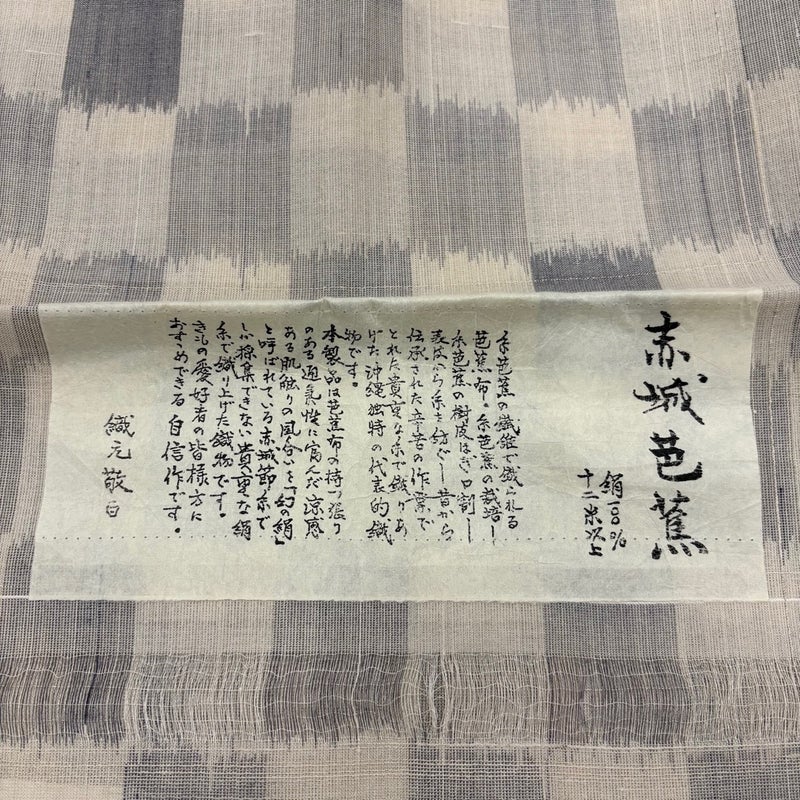 赤城芭蕉
絹一〇〇%
十二米以上
糸芭蕉の繊維で織られる
芭蕉布。糸芭蕉の栽培し
糸芭蕉の樹皮はぎ口割し
表皮から糸を紡ぐし昔から
伝承された辛苦の作業で
とれた貴重な糸で織りあ
げた沖縄独特の代表的織
物です。
本製品は芭蕉布の持つ張り
のある通気性に富んだ涼感
ある肌触りの風合いを「幻の絹」
と呼ばれている赤城節糸で
しか採集できない貴重な絹
糸で織り上げた織物です。
きもの愛好者の皆様方に
おすすめできる自信作です。
織元敬白